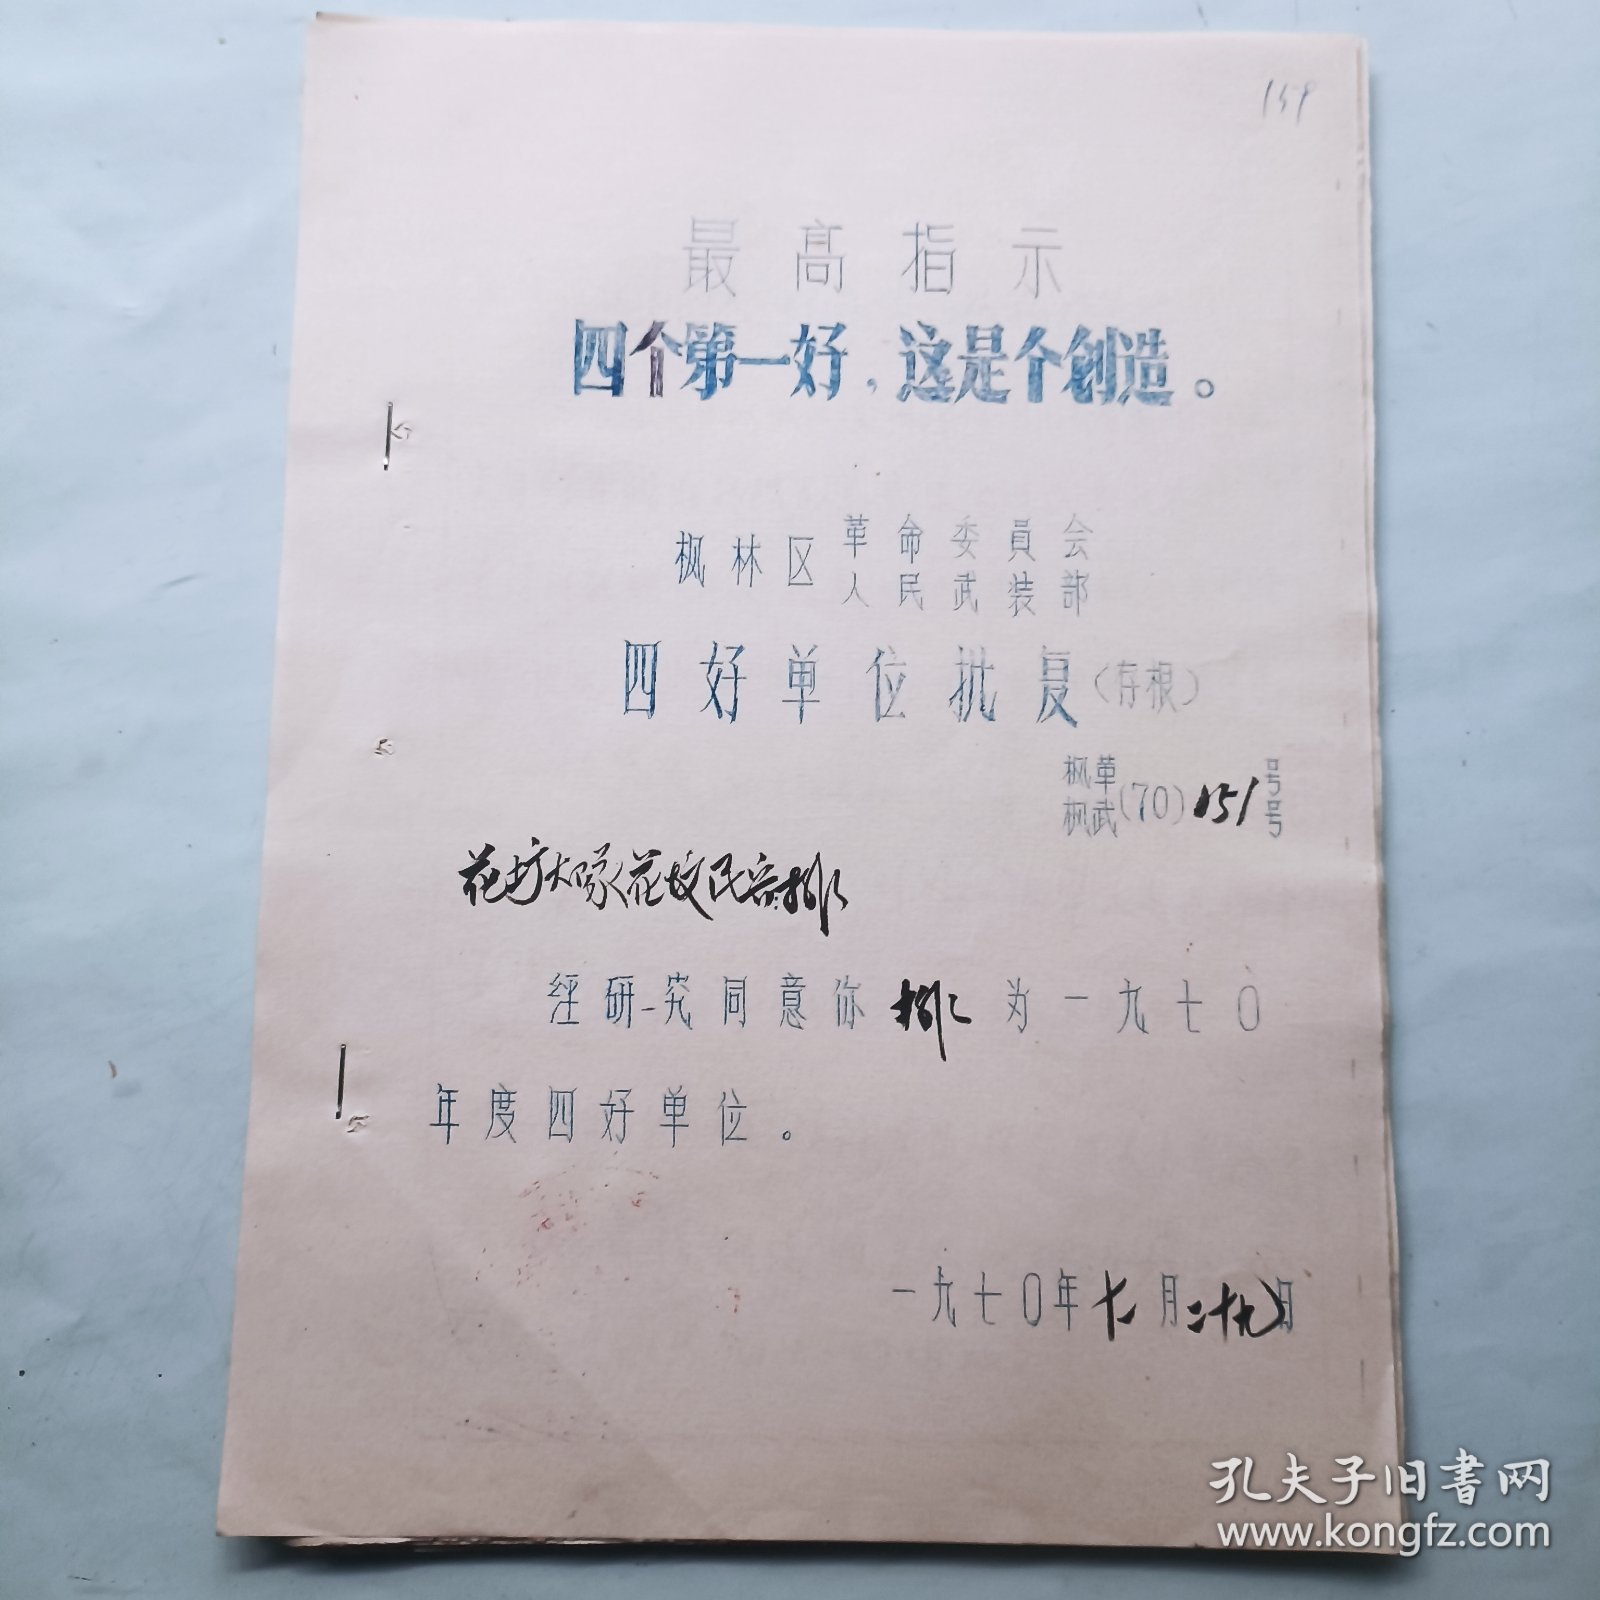 159
最高指示
四个第一好，这是个创造。
枫林区革命委員会
人民武装部
四好单位批复（存根）
枫革
枫武（70）151号
号
花坟大队花坟民兵排
经研究同意你排为一九七〇
年度四好单位。
一九七〇年十二月二十九日
孔夫子旧書网
www.kongfz.com